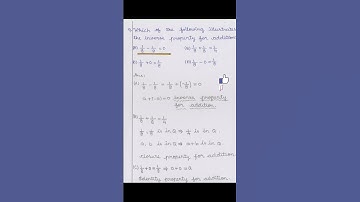 Which of the following illustrates
the inverse property for addition?
(A) 1/8 - 1/8 = 0
(C) 1/8 + 0 = 1/8
(D) 1/8 - 0 = 1/8
Ans:
(A) 1/8 - 1/8 = 1/8 + (-1/8) = 0
a + (-a) = 0 inverse property
for addition.
(B)
1/8, 1/8 is in Q ⇒ 1/4 is in Q.
a, b is in Q ⇒ a+b is in Q.
closure property for addition
(C) 1/8 + 0 = 1/8 ⇒ a + 0 = a
Identity property for addition.